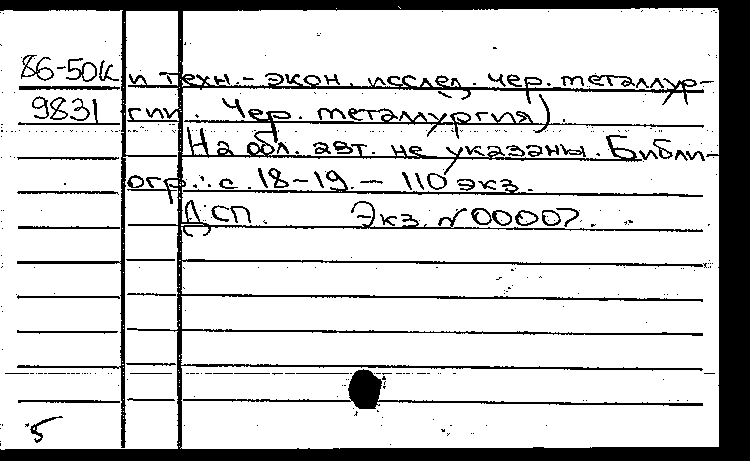 86-50К и техн.-экон. исслед. чер. металлур-
9831 гии. Чер. металлургия).
На обл. авт. не указаны. Библи-
огр.: с. 18-19. - 110 экз.
ДСП. Экз. №00007.
5